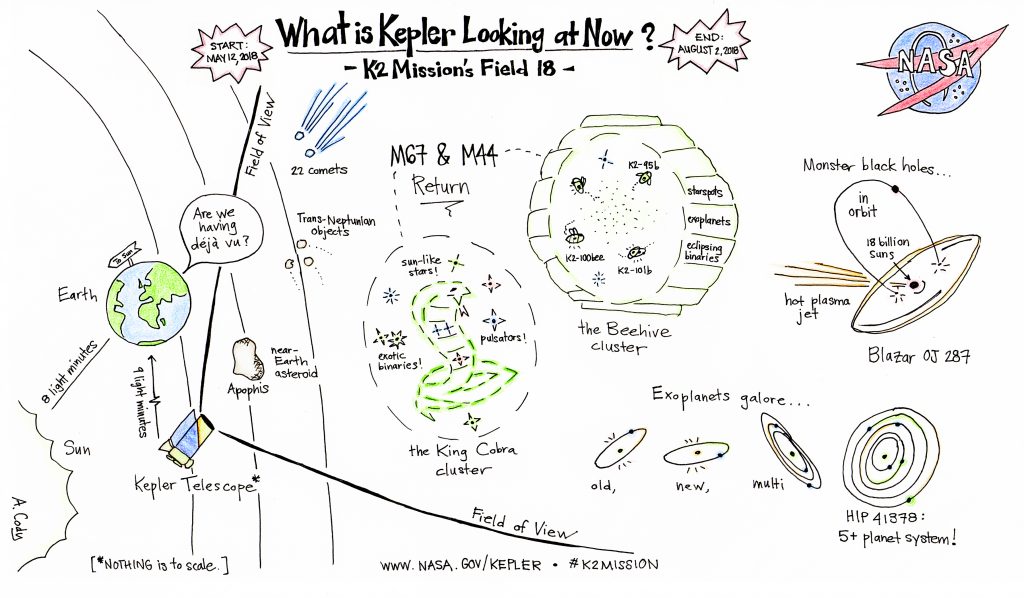 START:
MAY 12, 2018
What is Kepler Looking at Now?
- K2 Mission's Field 18 -
END:
AUGUST 2, 2018
NASA
Field of View
22 comets
Trans-Neptunian
objects
Are we
having
déjà vu?
To Sun
Earth
8 light minutes
9 light minutes
Sun
near-
Earth
asteroid
Apophis
Kepler Telescope*
A. Cody
[*NOTHING is to scale.]
Field of View
M67 & M44
Return
sun-like
stars!
exotic
binaries!
pulsators!
the King Cobra
cluster
K2-95b
K2-100bee
K2-101b
starspots
exoplanets
eclipsing
binaries
the Beehive
cluster
Monster black holes...
in
orbit
18 billion
suns
hot plasma
jet
Blazar OJ 287
Exoplanets galore...
old,
new,
multi
HIP 41378:
5+ planet system!
WWW.NASA.GOV/KEPLER • #K2MISSION